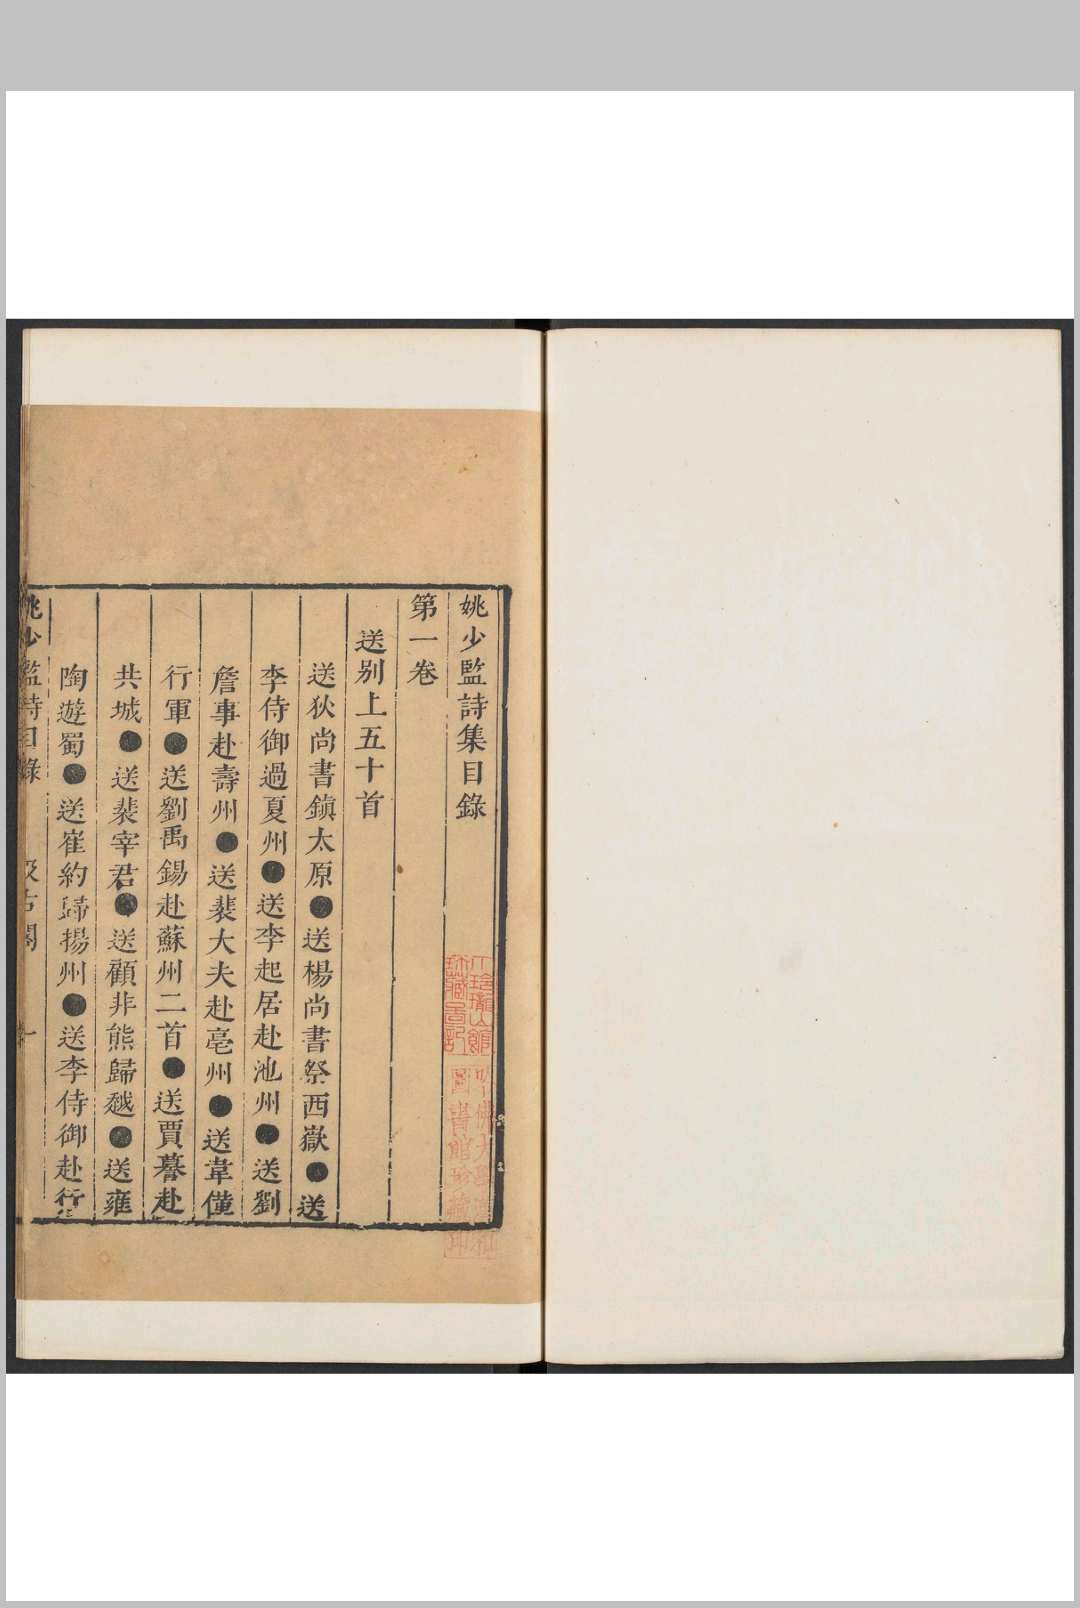 姚少監詩集目錄
第一卷
送别上五十首
送狄尚書鎮太原●送楊尚書祭西嶽●送
李侍御過夏州●送李起居赴池州●送劉
詹事赴壽州●送裴大夫赴亳州●送韋僅
行軍●送劉禹錫赴蘇州二首●送賈謩赴
共城●送裴宰君●送顧非熊歸越●送雍
陶遊蜀●送崔約歸揚州●送李侍御赴行
姚少監詩目錄 汲古閣 一
玲瓏山館
圖書館珍藏印